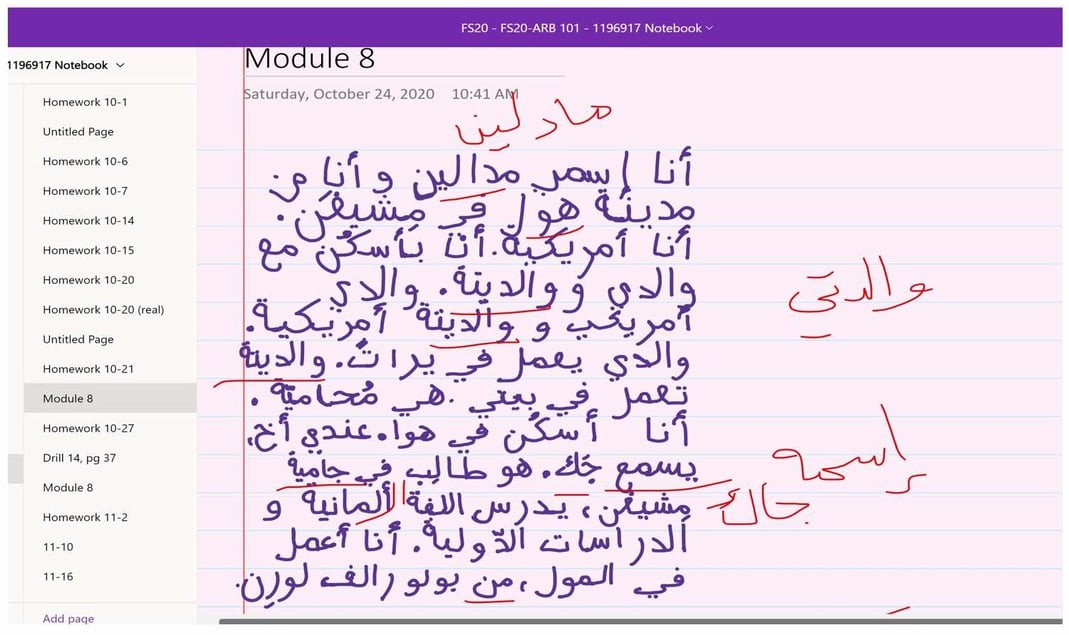 FS20 - FS20-ARB 101 - 1196917 Notebook
1196917 Notebook
Homework 10-1
Untitled Page
Homework 10-6
Homework 10-7
Homework 10-14
Homework 10-15
Homework 10-20
Homework 10-20 (real)
Untitled Page
Homework 10-21
Module 8
Homework 10-27
Drill 14, pg 37
Module 8
Homework 11-2
11-10
11-16
Add page
Module 8
Saturday, October 24, 2020 10:41 AM
مادلين
أنا إسمر مدالين و أنا من
مدينة هول في مشيقن.
أنا أمريكية. أنا بأسكن مع
والدي و والديتة. والدي
أمريكي و والديتة أمريكية.
والدي يعمل في يرات. والديتة
تعمل في بيتي. هي مُحامية.
أنا أسكن في هوا. عندي أخ،
يسمع جَك. هو طالب في جامية
مشيقن، يدرس اللغة الألمانية و
الدراسات الدّولية. أنا أعمل
في المول، من بولو رالف لورن.
والدتي
إسمه
جاك